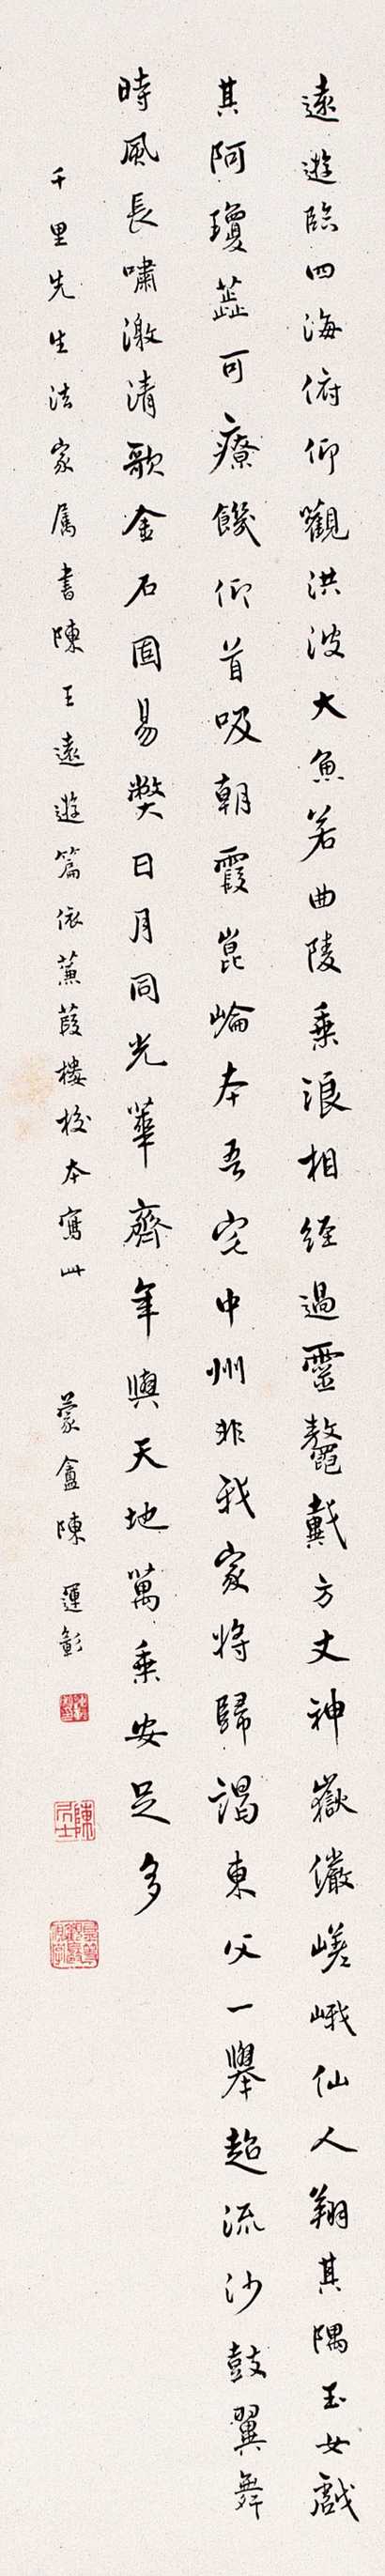 遠遊臨四海俯仰觀洪波大魚若曲陵乘浪相經過靈鼇戴方丈神嶽儼嵯峨仙人翔其隅玉女戲
其阿瓊蕊可療饑仰首吸朝霞崑崙本吾宅中州非我家將歸謁東父一舉超流沙鼓翼舞
時風長嘯激清歌金石固易弊日月同光華齊年與天地萬乘安足多
千里先生法家属書陳王遠遊篇依蒹葭樓校本寫此
蒙盦陳運彰